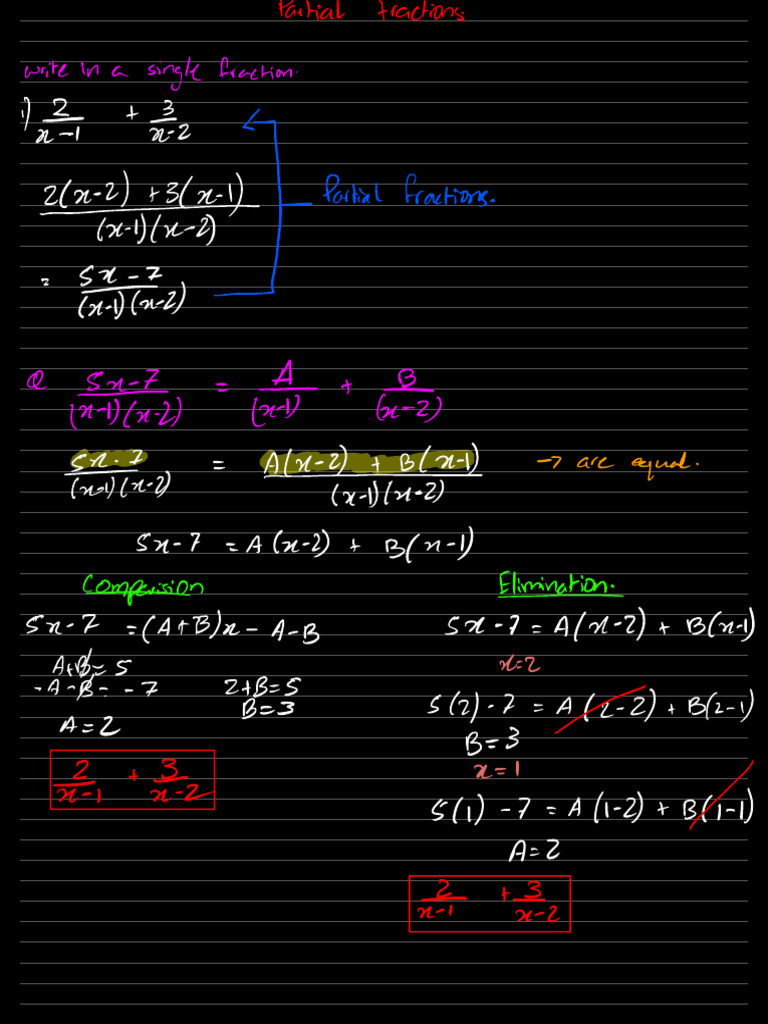 Partial fractions
write in a single fraction.
1) 2/(x-1) + 3/(x-2)
(2(x-2) + 3(x-1))/((x-1)(x-2))
Partial fractions.
= (5x-7)/((x-1)(x-2))
Q (5x-7)/((x-1)(x-2)) = A/(x-1) + B/(x-2)
(5x-7)/((x-1)(x-2)) = (A(x-2) + B(x-1))/((x-1)(x-2)) → are equal.
5x-7 = A(x-2) + B(x-1)
Comparision
5x-7 = (A+B)x - A-B
A+B = 5
-A-B = -7
A = 2
2+B = 5
B = 3
2/(x-1) + 3/(x-2)
Elimination.
5x-7 = A(x-2) + B(x-1)
x=2
5(2)-7 = A(2-2) + B(2-1)
B = 3
x = 1
5(1) -7 = A(1-2) + B(1-1)
A = 2
2/(x-1) + 3/(x-2)